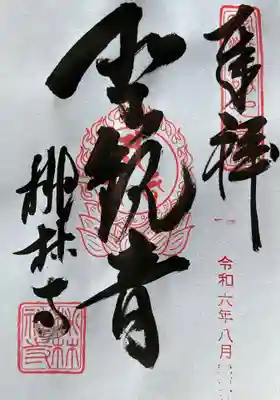 奉拝
令和六年八月
聖観音
桃林寺